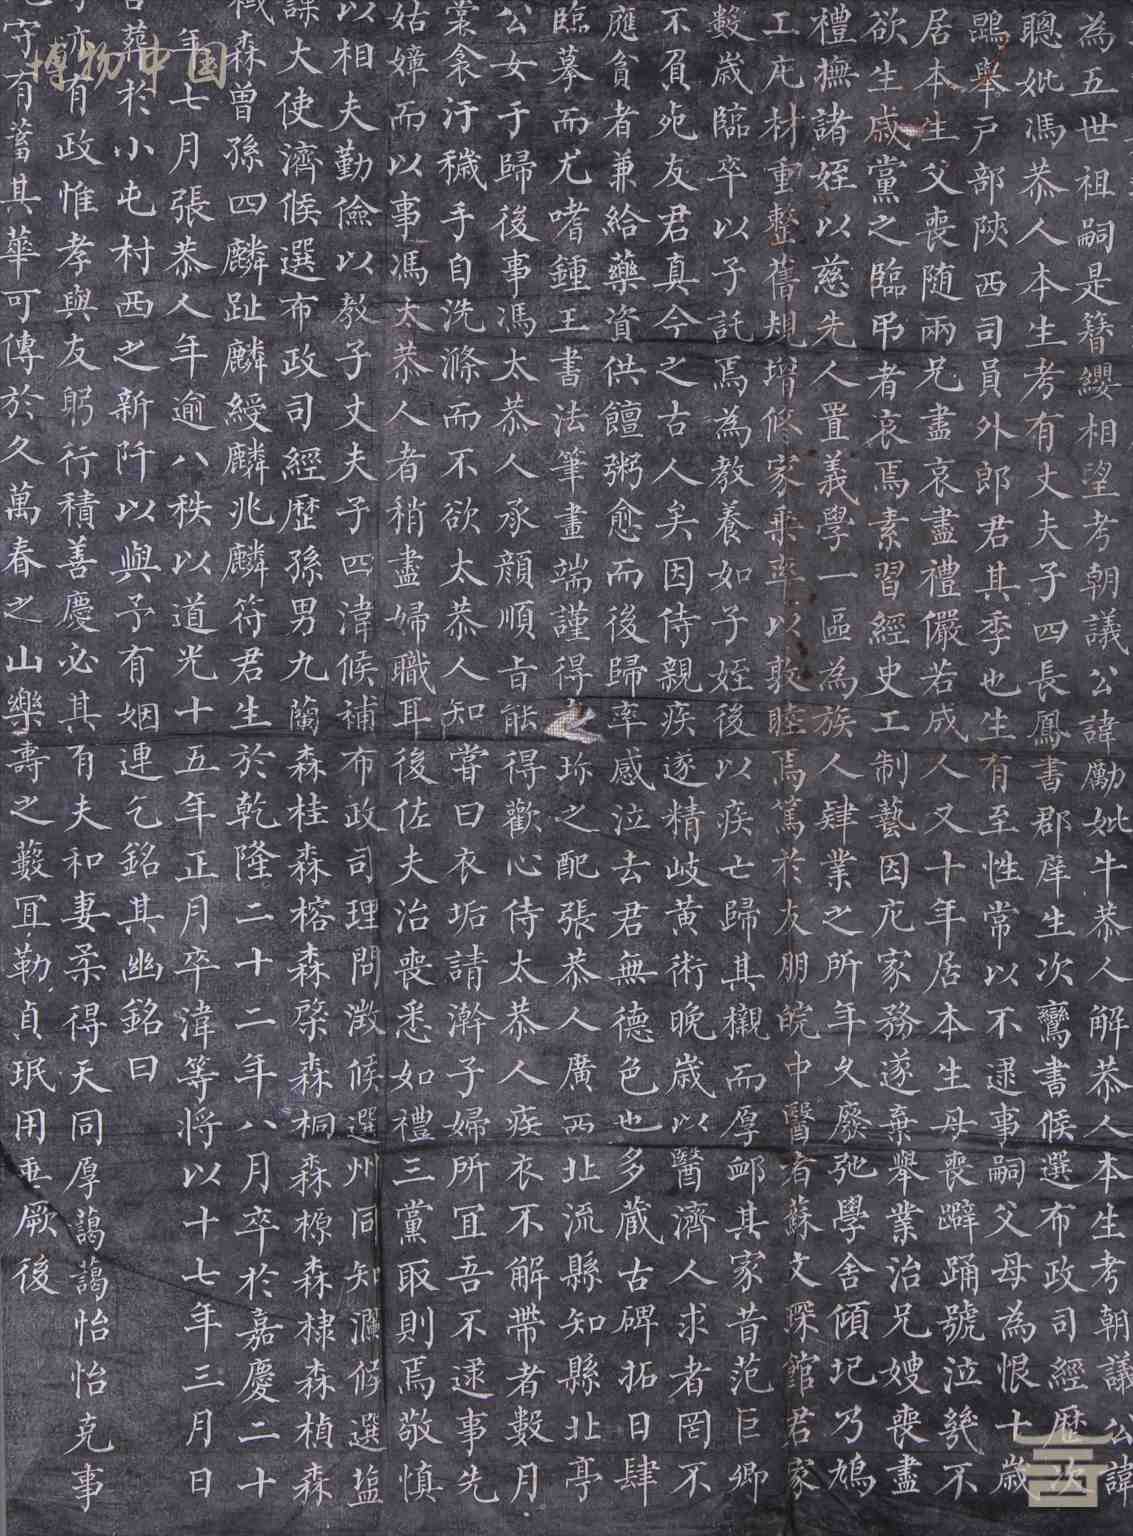 為五世祖嗣是簪纓相望考朝議公諱勵妣牛恭人解恭人本生考朝議公諱
聰妣馮恭人本生考有丈夫子四長鳳書郡庠生次鸞書候選布政司經歷次
鶚舉戶部陝西司員外郎君其季也生有至性常以不逮事嗣父母為恨十歲
居本生父喪随兩兄盡哀盡禮儼若成人又十年居本生母喪躃踊號泣幾不
欲生戚黨之臨弔者哀焉素習經史工制藝因亢家務遂棄舉業治兄嫂喪盡
禮撫諸姪以慈先人置義學一區為族人肄業之所年久廢弛學舍傾圮乃鳩
工庀材重整舊規增修家乗率以敦睦焉篤於友朋皖中醫者蘇文琛館君家
數歲臨卒以子託焉為教養如子姪後以疾亡歸其櫬而厚卹其家昔范巨卿
不負死友君真今之古人矣因侍親疾遂精岐黃術晚歲以醫濟人求者罔不
應貧者兼給藥資供饘粥愈而後歸率感泣去君無德色也多蔵古碑拓日肆
臨摹而尤嗜鍾王書法筆畫端謹得 珎之配張恭人廣西北流縣知縣北亭
公女于歸後事馮太恭人承顔順旨能得歡心侍太恭人疾衣不解帶者數月
裳衾汙穢手自洗滌而不欲太恭人知嘗曰衣垢請澣子婦所宜吾不逮事先
姑嫜而以事馮太恭人者稍盡婦職耳後佐夫治喪悉如禮三黨取則焉敬慎
以相夫勤儉以教子丈夫子四湋候補布政司理問澂候選州同知瀾候選鹽
課大使濟候選布政司經歷孫男九蘭森桂森榕森棨森桐森榞森棣森楨森
檝森曽孫四麟趾麟綬麟兆麟符君生於乾隆二十二年八月卒於嘉慶二十
年七月張恭人年逾八秩以道光十五年正月卒湋等将以十七年三月日
葬於小屯村西之新阡以與予有姻連乞銘其幽銘曰
亦有政惟孝與友躬行積善慶必其有夫和妻柔得天同厚藹藹怡怡克事
守有蓄其華可傳於久萬春之山樂壽之藪冝勒貞珉用垂厥後
博物中国